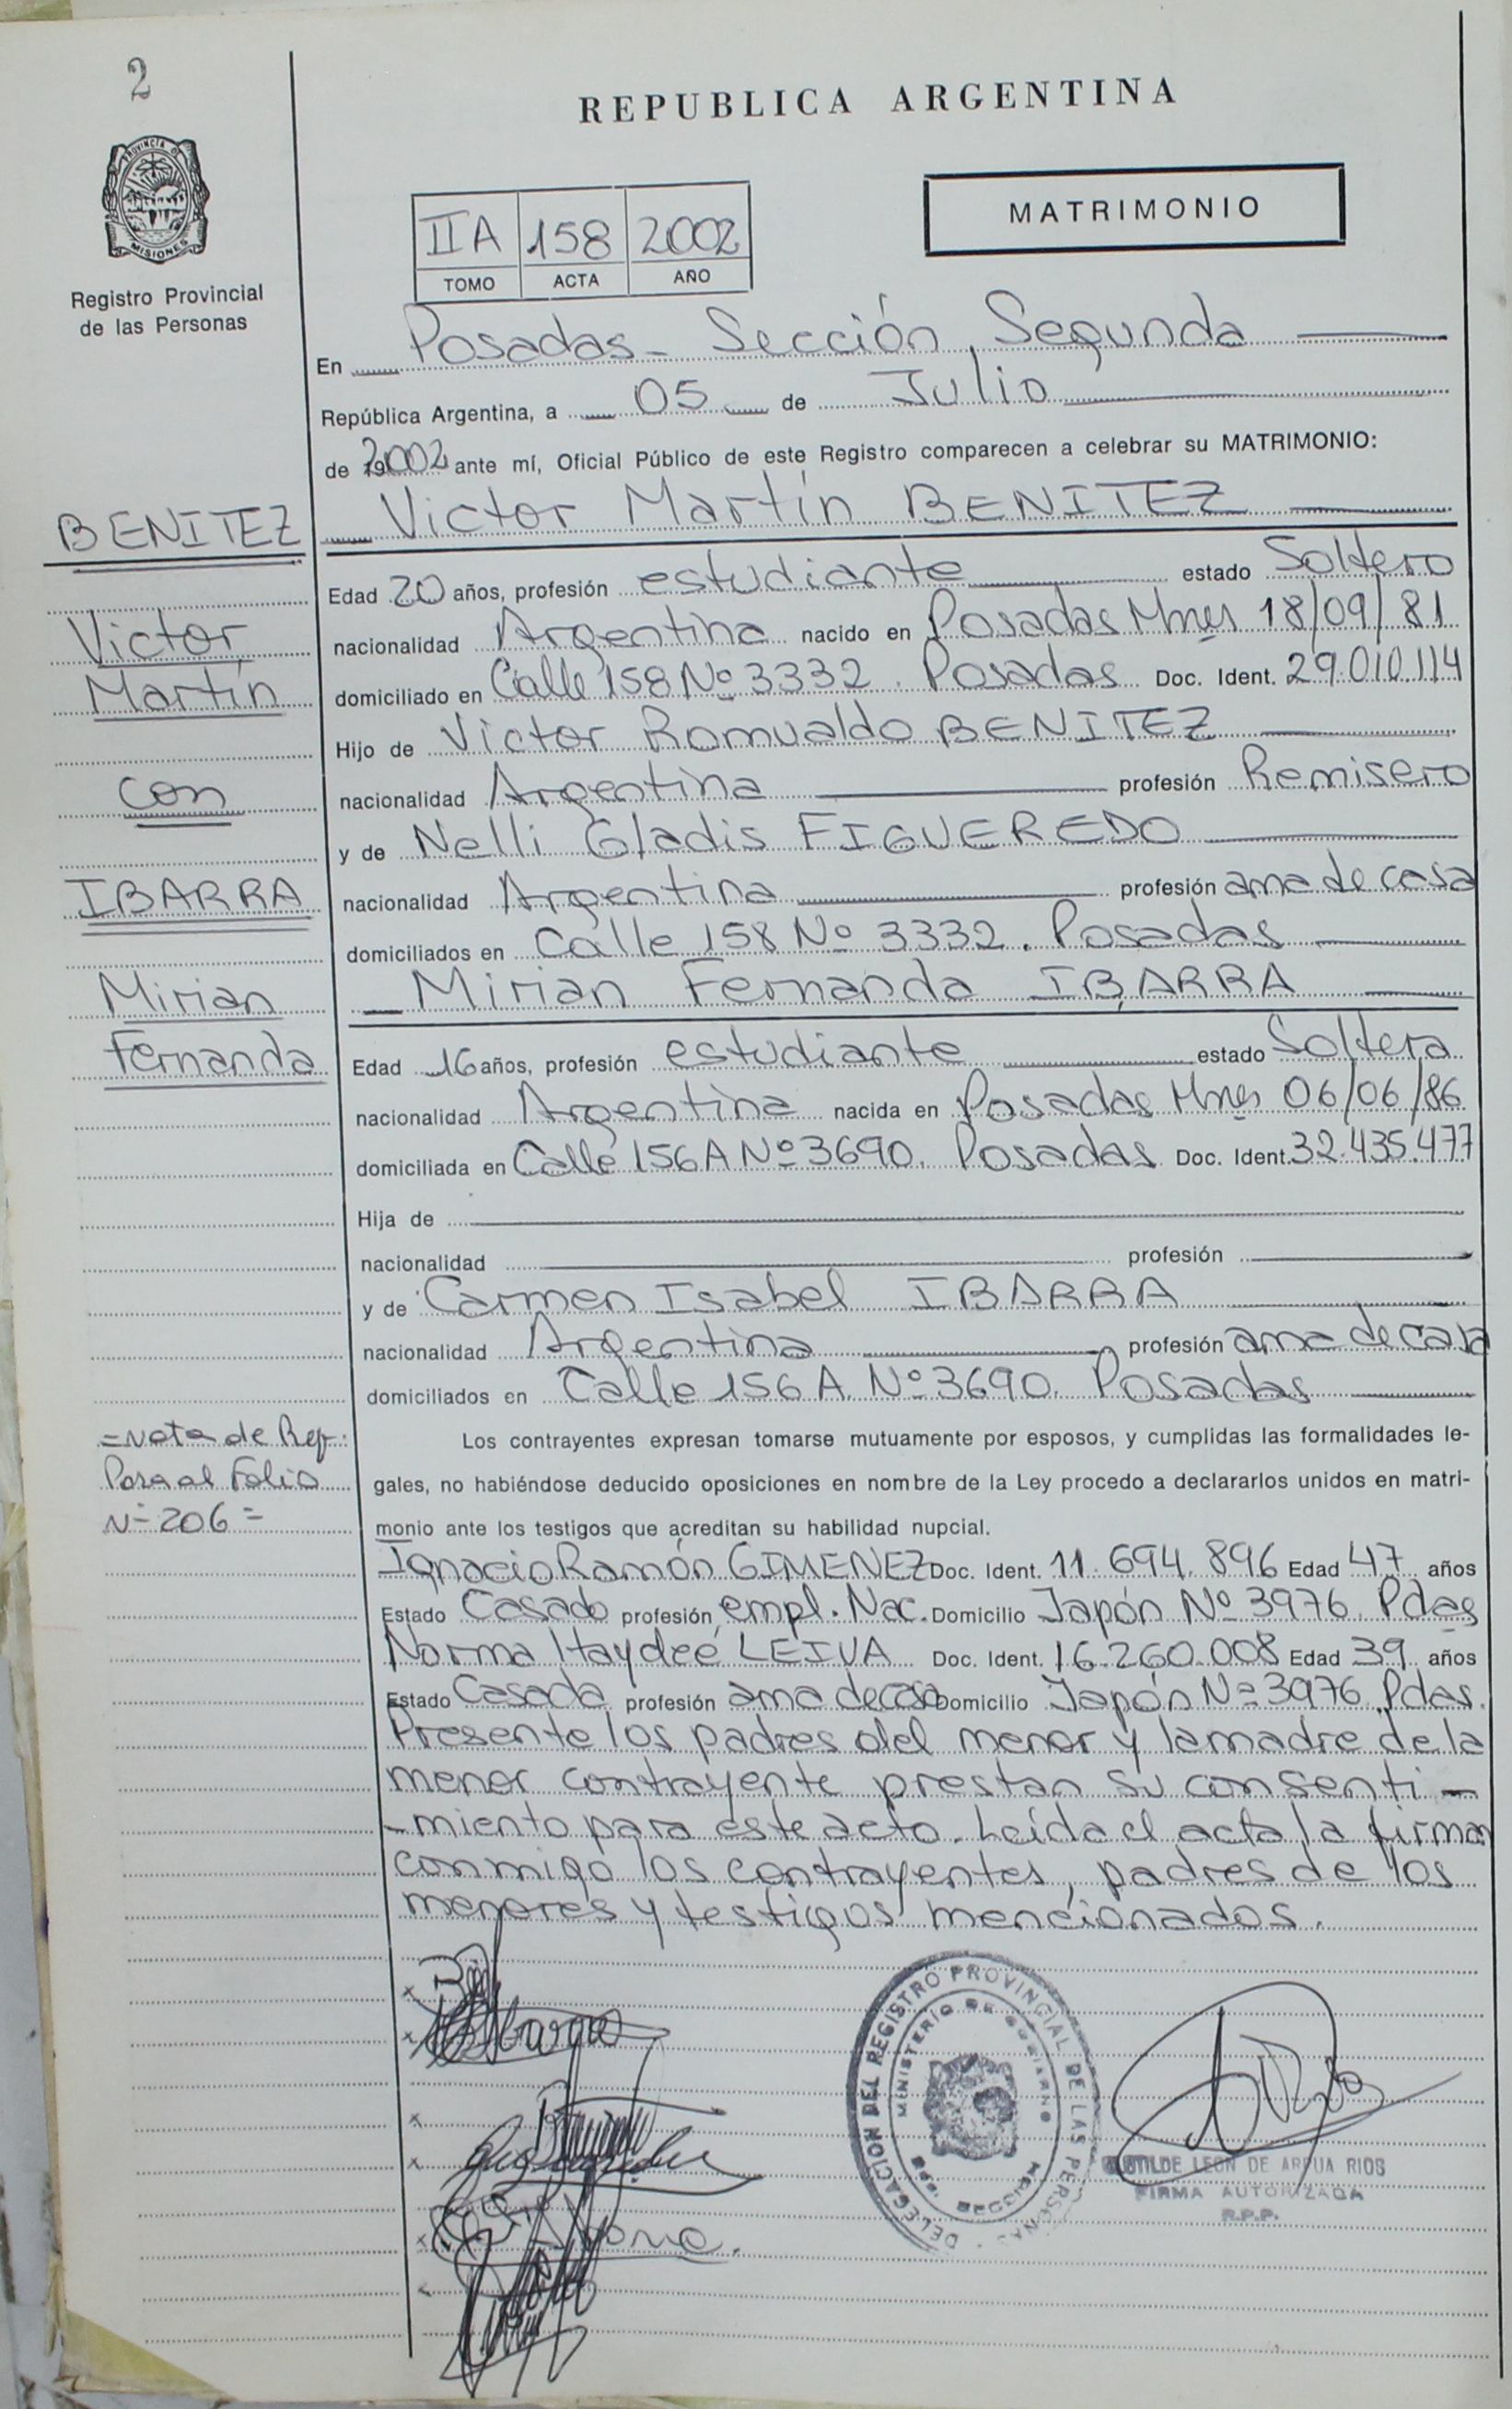 2
REPUBLICA ARGENTINA
PROVINCIA DE
MISIONES
Registro Provincial
de las Personas
IIA 158 2002
TOMO ACTA AÑO
MATRIMONIO
En Posadas - Sección Segunda
República Argentina, a 05 de Julio
de 2002 ante mí, Oficial Público de este Registro comparecen a celebrar su MATRIMONIO:
BENITEZ
Victor
Martín
con
IBARRA
Mirian
Fernanda
Victor Martín BENITEZ
Edad 20 años, profesión estudiante estado Soltero
nacionalidad Argentina nacido en Posadas Mnes 18/09/81
domiciliado en Calle 158 Nº 3332. Posadas Doc. Ident. 29.010.114
Hijo de Victor Romualdo BENITEZ
nacionalidad Argentina profesión Remisero
y de Nelli Gladis FIGUEREDO
nacionalidad Argentina profesión ama de casa
domiciliados en Calle 158 Nº 3332. Posadas
Mirian Fernanda IBARRA
Edad 16 años, profesión estudiante estado Soltera
nacionalidad Argentina nacida en Posadas Mnes 06/06/86
domiciliada en Calle 156A Nº 3690. Posadas Doc. Ident. 32.435.477
Hija de
nacionalidad profesión
y de Carmen Isabel IBARRA
nacionalidad Argentina profesión ama de casa
domiciliados en Calle 156 A Nº 3690. Posadas
=Nota de Ref.
Pasa al Folio
Nº 206=
Los contrayentes expresan tomarse mutuamente por esposos, y cumplidas las formalidades le-
gales, no habiéndose deducido oposiciones en nombre de la Ley procedo a declararlos unidos en matri-
monio ante los testigos que acreditan su habilidad nupcial.
Ignacio Ramón GIMENEZ Doc. Ident. 11.694.896 Edad 47 años
Estado Casado profesión empl. Nac. Domicilio Japón Nº 3976. Pdas
Norma Haydeé LEIVA Doc. Ident. 16.260.008 Edad 39 años
Estado Casada profesión ama de casa Domicilio Japón Nº 3976 Pdas.
Presente los padres del menor y la madre de la
menor contrayente prestan su consenti-
-miento para este acto. Leída el acta la firman
conmigo los contrayentes, padres de los
menores y testigos mencionados.
DELEGACION DEL REGISTRO PROVINCIAL DE LAS PERSONAS
MINISTERIO DE GOBIERNO
SECCION
LEON DE ARRUA RIOS
FIRMA AUTORIZADA
R.P.P.